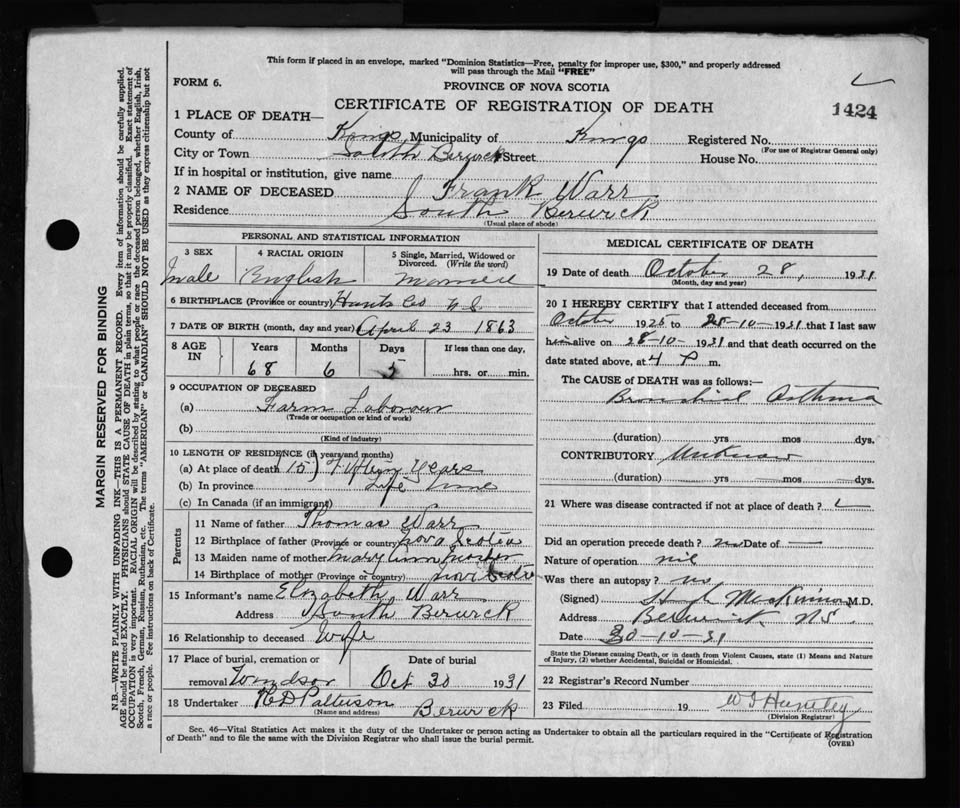 This form if placed in an envelope, marked "Dominion Statistics—Free, penalty for improper use, $300," and properly addressed
will pass through the Mail "FREE"
FORM 6.
PROVINCE OF NOVA SCOTIA
CERTIFICATE OF REGISTRATION OF DEATH
1424
1 PLACE OF DEATH—
County of Kings Municipality of Kings Registered No.
(For use of Registrar General only)
City or Town South Berwick Street House No.
If in hospital or institution, give name
2 NAME OF DECEASED Frank Warr
Residence South Berwick
(Usual place of abode)
PERSONAL AND STATISTICAL INFORMATION
3 SEX 4 RACIAL ORIGIN 5 Single, Married, Widowed or Divorced. (Write the word)
Male English Married
6 BIRTHPLACE (Province or country) Hants Co N.S.
7 DATE OF BIRTH (month, day and year) April 23 1863
8 AGE IN Years Months Days If less than one day,
68 6 5 hrs. or min.
9 OCCUPATION OF DECEASED
(a) Farm Labourer
(Trade or occupation or kind of work)
(b)
(Kind of industry)
10 LENGTH OF RESIDENCE (in years and months)
(a) At place of death (15) Fifteen Years
(b) In province Life time
(c) In Canada (if an immigrant)
Parents
11 Name of father Thomas Warr
12 Birthplace of father (Province or country) Nova Scotia
13 Maiden name of mother Mary Ann
14 Birthplace of mother (Province or country) Nova Scotia
15 Informant's name Elizabeth Warr
Address South Berwick
16 Relationship to deceased Wife
17 Place of burial, cremation or Date of burial
removal Windsor Oct 30 1931
18 Undertaker H D Patterson
(Name and address) Berwick
MEDICAL CERTIFICATE OF DEATH
19 Date of death October 28, 1931
(Month, day and year)
20 I HEREBY CERTIFY that I attended deceased from
October 1925 to 28-10-1931 that I last saw
him alive on 28-10-1931 and that death occurred on the
date stated above, at 4 P m.
The CAUSE of DEATH was as follows:—
Bronchial Asthma
(duration) yrs mos dys.
CONTRIBUTORY Unknown
(duration) yrs mos dys.
21 Where was disease contracted if not at place of death?
Did an operation precede death? no Date of —
Nature of operation nil
Was there an autopsy? no
(Signed) Hugh MacKinnon M.D.
Address Berwick N.S.
Date 30-10-31
State the Disease causing Death, or in death from Violent Causes, state (1) Means and Nature
of Injury, (2) whether Accidental, Suicidal or Homicidal.
22 Registrar's Record Number
23 Filed 19 W J Huntley
(Division Registrar)
Sec. 46—Vital Statistics Act makes it the duty of the Undertaker or person acting as Undertaker to obtain all the particulars required in the "Certificate of Registration
of Death" and to file the same with the Division Registrar who shall issue the burial permit.
(OVER)
MARGIN RESERVED FOR BINDING
N.B.—WRITE PLAINLY WITH UNFADING INK—THIS IS A PERMANENT RECORD. Every item of information should be carefully supplied.
AGE should be stated EXACTLY. PHYSICIANS should STATE CAUSE OF DEATH in plain terms, so that it may be properly classified. Exact statement of
OCCUPATION is very important. RACIAL ORIGIN will be described by stating to what people or race the deceased person belonged, whether English, Irish,
Scotch, French, German, Russian, Ruthenian, etc. The terms "AMERICAN" or "CANADIAN" SHOULD NOT BE USED as they express citizenship but not
a race or people. See instructions on back of Certificate.